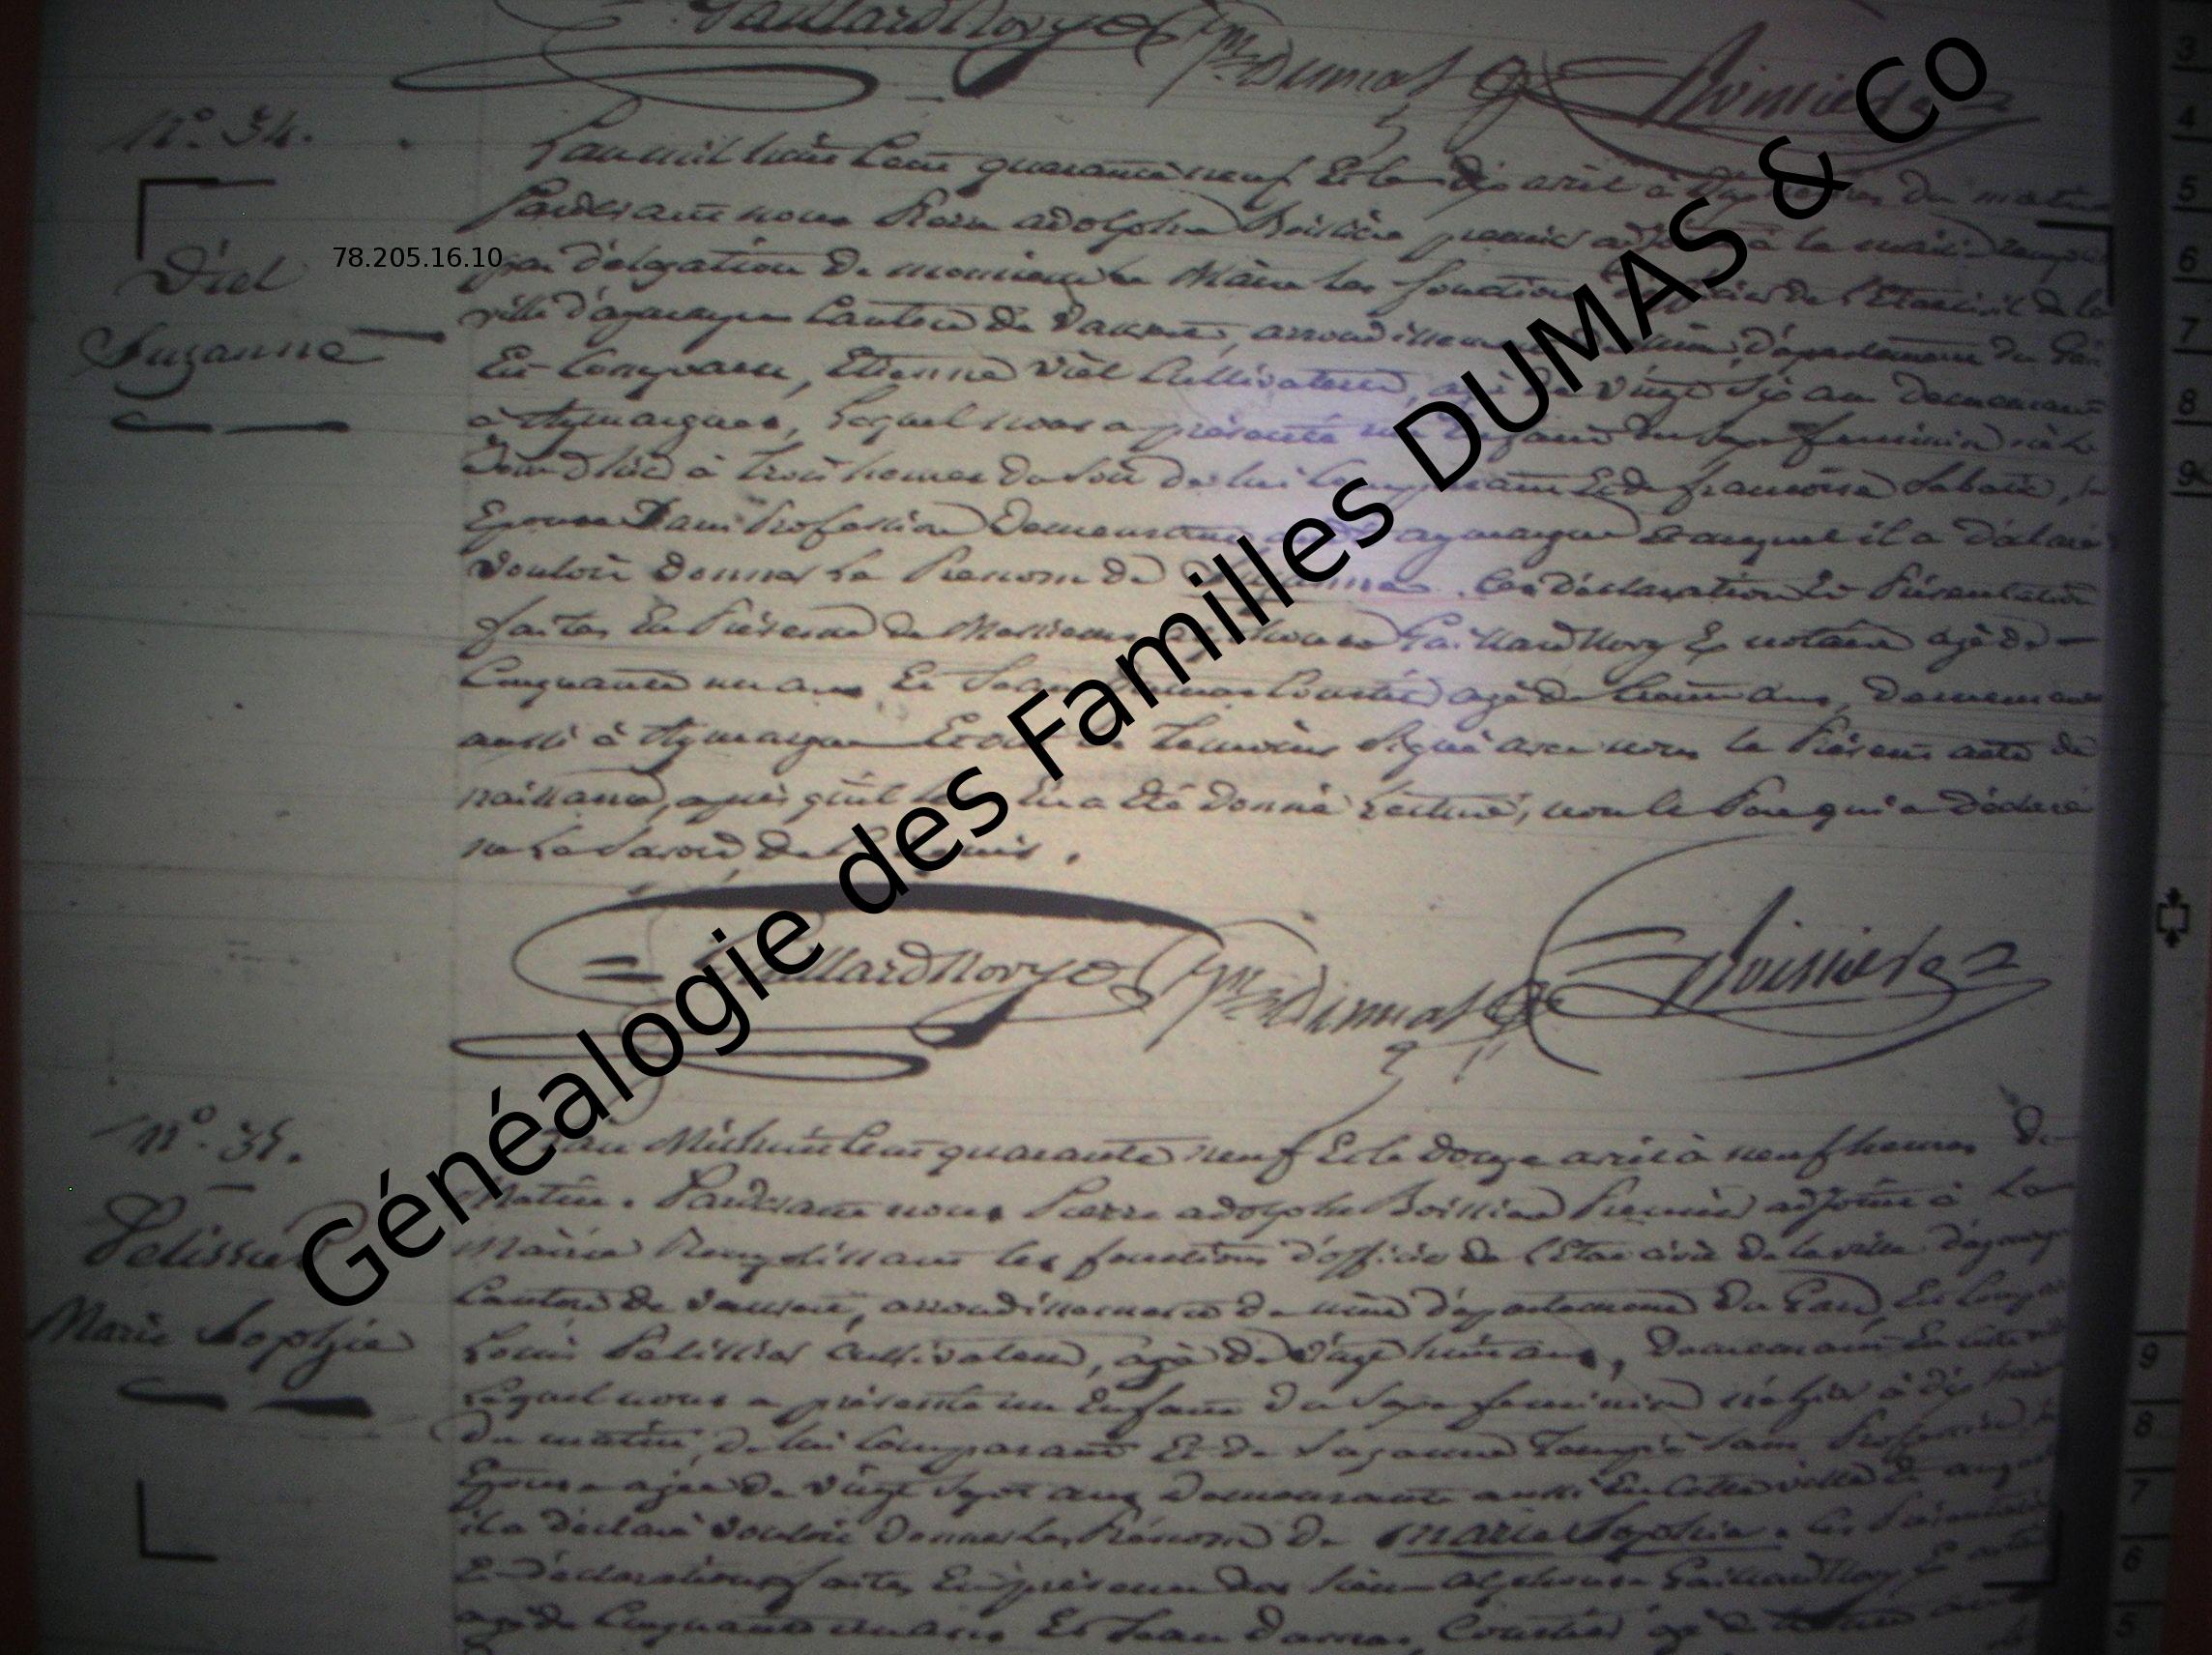 GaillardNory
N° 34.
L'an mil huit cent quarante neuf Et le dix avril à heures du matin
Pardevant nous Pierre adolphe Boissière premier adjoint à la mairie
par délégation de monsieur le Maire les fonctions d'officier de l'Etat civil de la
Viel
78.205.16.10
ville d'aymargues Canton de Vauvert, arrondissement de nime, département du Gard
Suzanne
Est Comparu, Etienne Viel Cultivateur, agé de vingt six ans demeurant
à Aymargues, Lequel nous a présenté un Enfant du sexe feminin né
à trois heures du soir de lui Comparant Et de françoise
Epouse Sans Profession Demeurant aymargues auquel il a déclaré
Vouloir donner Le Prenom de Suzanne. Ces déclaration Et Présentation
faites En Présence de Messieurs alphonse Gaillard Nory Ex notaire agé de
Cinquante un ans Et Jean agé de trente ans, demeurant
aussi à Aymargues Et ont les Temoins Signé avec nous le Présent acte de
naissance, après qu'il leur En a été donné Lecture, non le Pere qui a déclaré
ne Le Savoir de Ce requis.
GaillardNory
Généalogie des Familles DUMAS & Co
N° 35.
L'an Mil huit Cent quarante neuf Et le douze avril à neuf heures du
Matin. Pardevant nous Pierre adolphe Boissière Premier adjoint à La
Pelissier
Mairie Remplissant les fonctions d'officier de l'Etat civil de la ville
Canton de Vauvert, arrondissement de nime département du Gard, Est
Marie Sophie
Louis Pelissier Cultivateur, agé de vingt huit ans, demeurant En cette
Lequel nous a présenté un Enfant du Sexe feminin né hier à dix heures
du matin, de lui Comparant Et de Suzanne Sans Profession
Epouse agée de vingt Sept ans demeurante aussi En Cette ville
il a déclaré Vouloir donner les Prénoms de Marie Sophie. Ces
Et déclarations faites En présence des Sieurs alphonse Gaillard Nory Ex
agé de Cinquante un ans Et Jean agé de trente ans
3
4
5
6
7
8
9
9
8
7
6
5